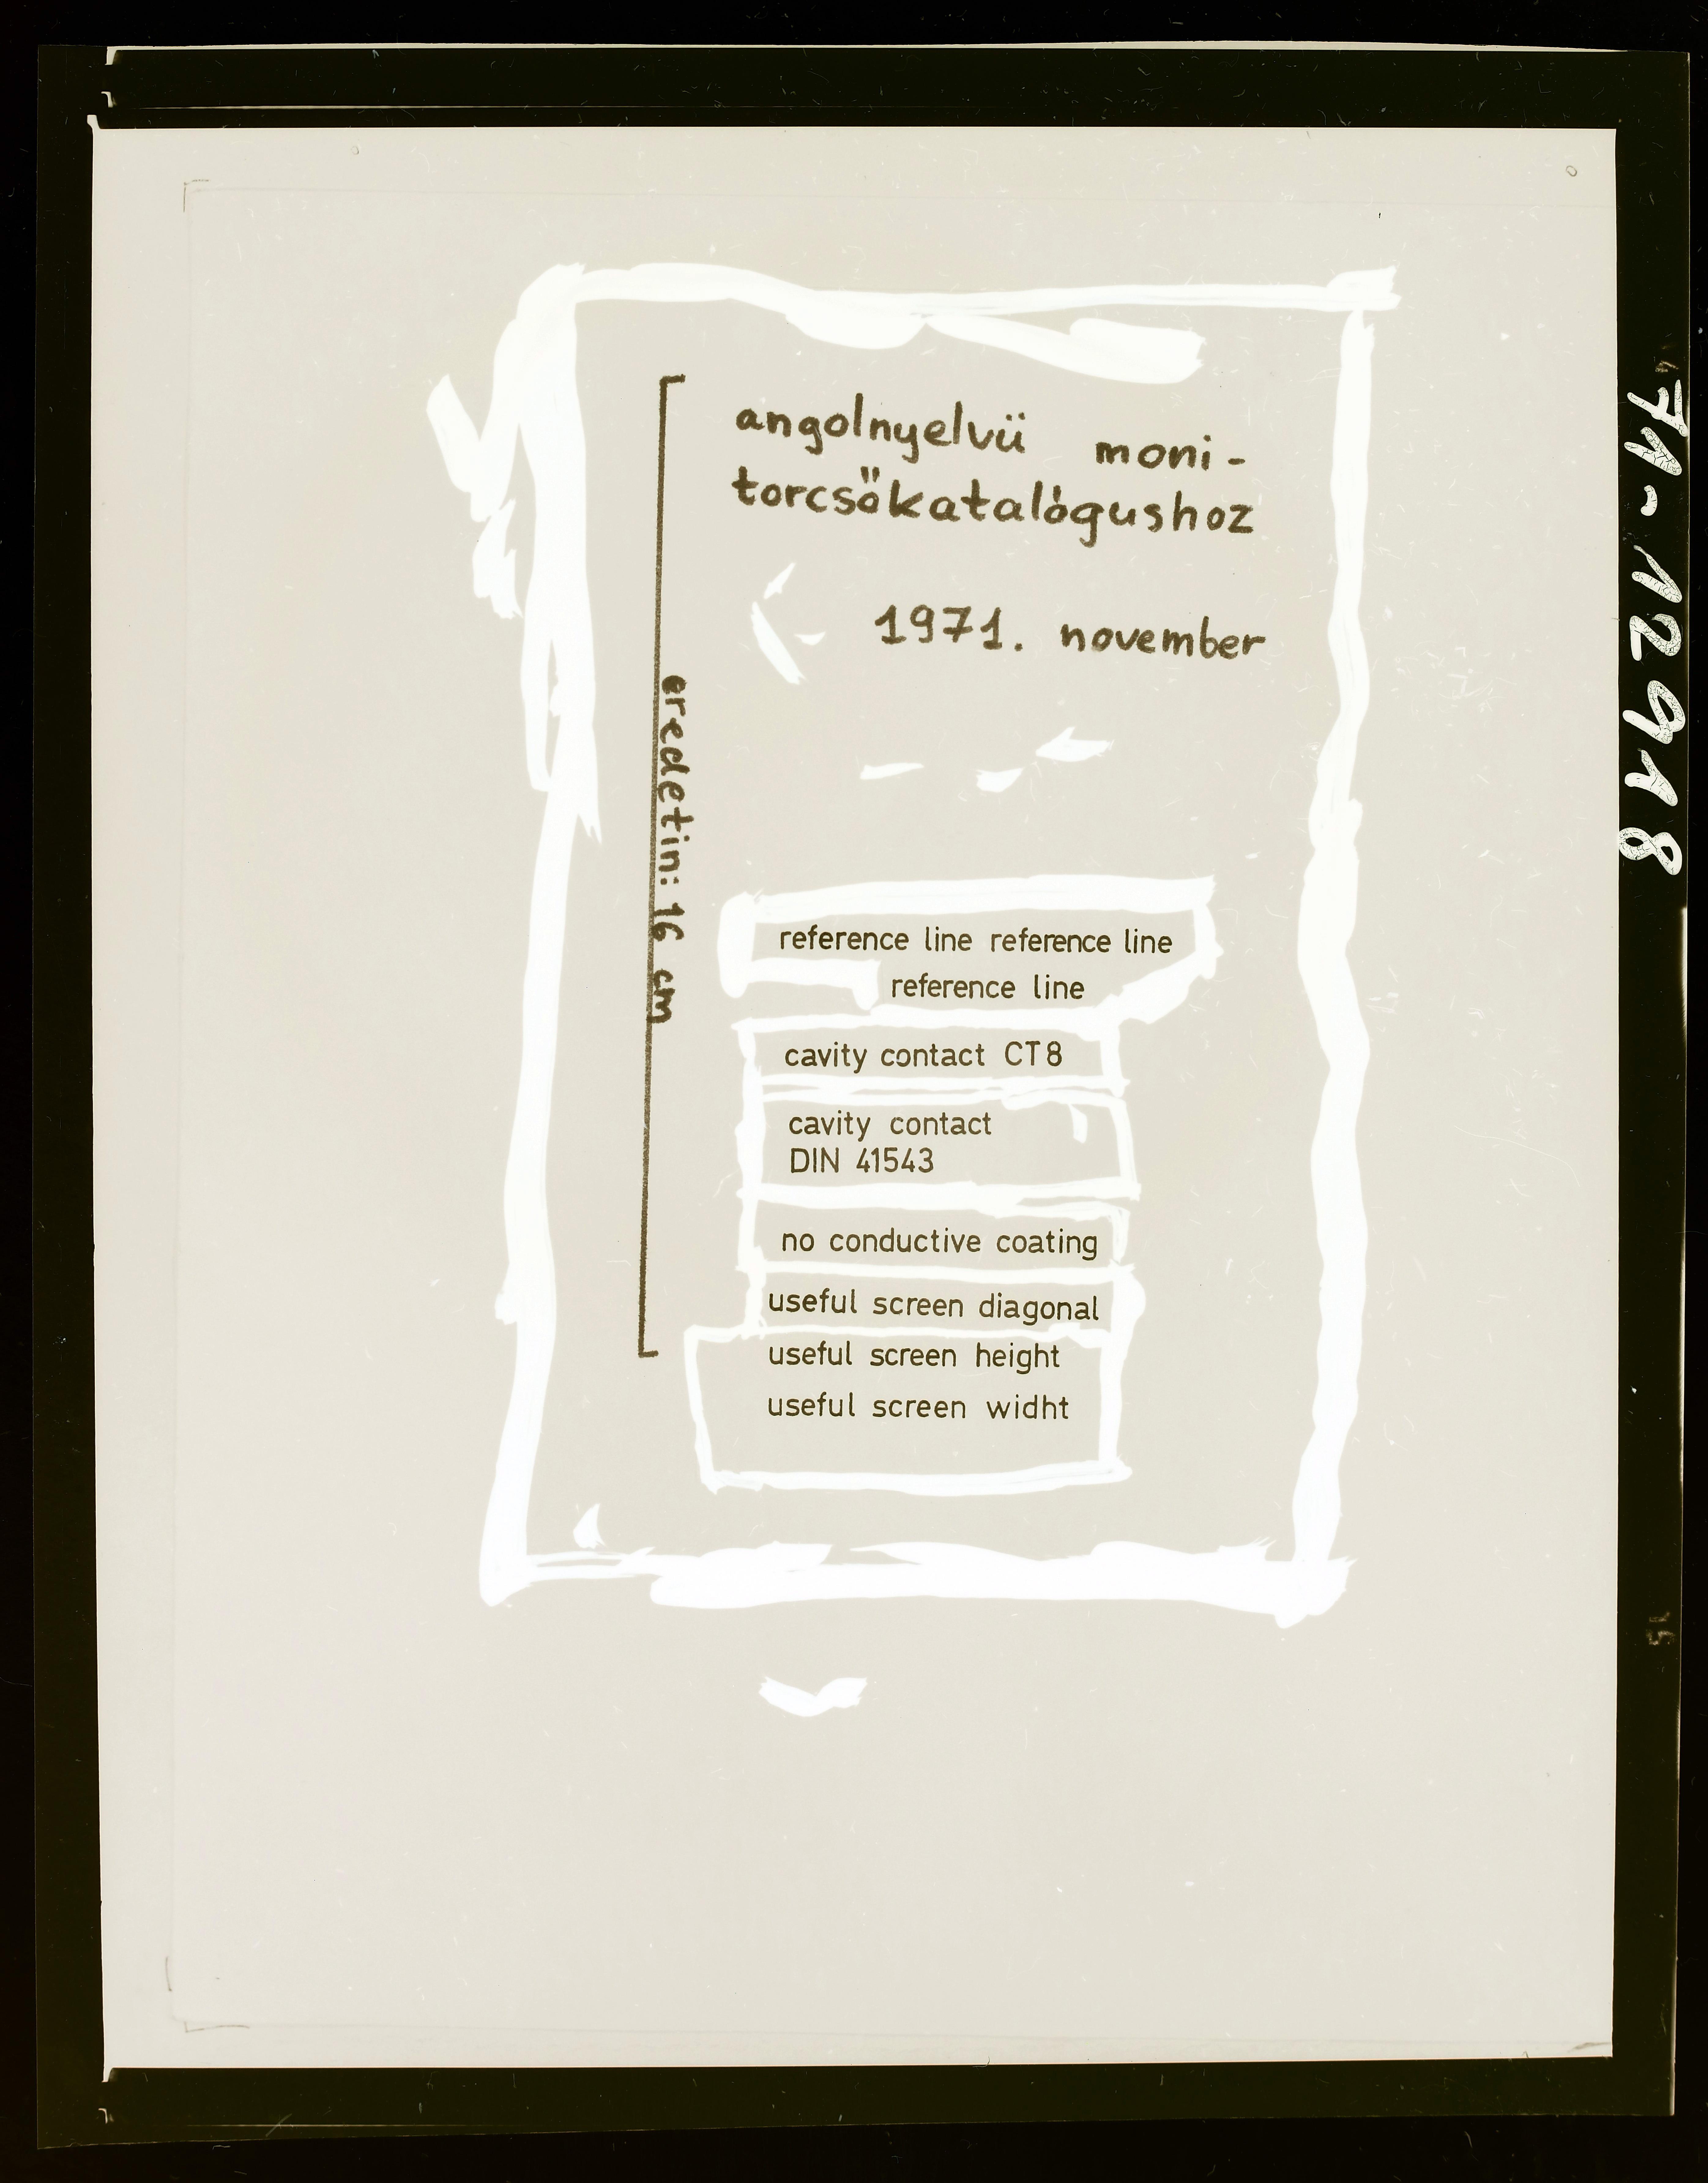 angolnyelvü moni-
torcsőkatalógushoz
1971. november
eredetin: 16 cm
reference line reference line
reference line
cavity contact CT8
cavity contact
DIN 41543
no conductive coating
useful screen diagonal
useful screen height
useful screen widht
71-12918